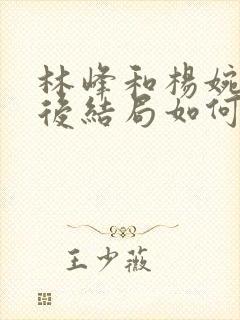 林峰和楊婉
後結局如何
王少薇